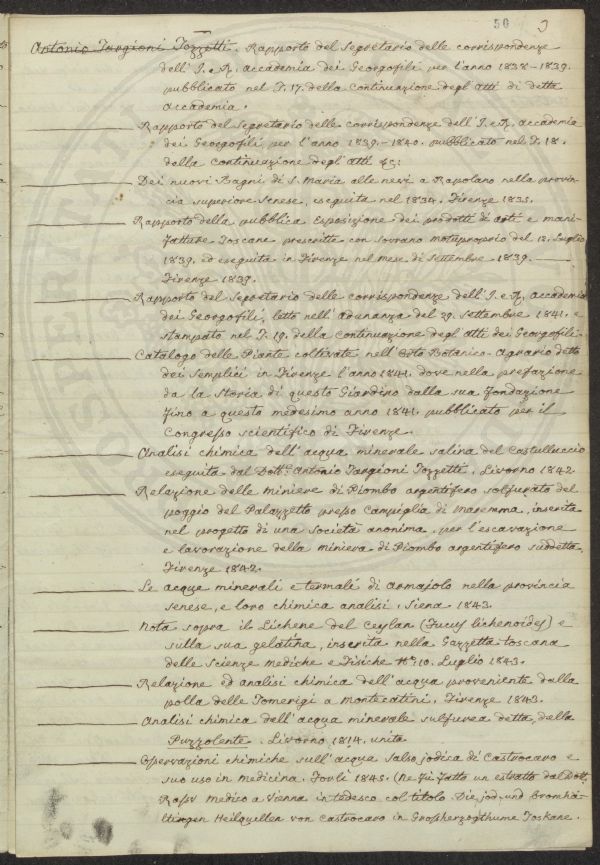 50 J
Antonio Targioni Tozzetti. Rapporto del Segretario delle corrispondenze
dell' I. e R. accademia dei Georgofili per l'anno 1838-1839.
pubblicato nel T. 17. della continuazione degl'atti di detta
accademia.
Rapporto del Segretario delle corrispondenze dell'I. e R. accademia
dei Georgofili per l'anno 1839.-1840. pubblicato nel T. 18.
della continuazione degl'atti &c:
Dei nuovi Bagni di S. Maria alle nevi a Rapolano nella provin-
cia superiore senese, eseguita nel 1834. Firenze 1835.
Rapporto della pubblica Esposizione dei prodotti di arti e mani-
fatture Toscane prescritta con sovrano motuproprio del 12. Luglio
1839. ed eseguita in Firenze nel mese di settembre 1839.
Firenze 1839.
Rapporto del Segretario delle corrispondenze dell'I. e R. accademia
dei Georgofili, letto nell'adunanza del 29. settembre 1841. e
stampato nel T. 19. della continuazione degl'atti dei Georgofili.
Catalogo delle Piante coltivate nell'Orto Botanico-Agrario detto
dei Semplici in Firenze l'anno 1841. dove nella prefazione
da la storia di questo Giardino dalla sua fondazione
fino a questo medesimo anno 1841. pubblicato per il
Congresso scientifico di Firenze.
Analisi chimica dell'acqua minerale salina del Castulluccio
eseguita dal Dott.e Antonio Targioni Tozzetti. Livorno 1842
Relazione delle miniere di Piombo argentifero solfurato del
poggio del Palazzetto presso Campiglia di Maremma, inserita
nel progetto di una società anonima, per l'escavazione
e lavorazione della miniera di Piombo argentifero suddetta,
Firenze 1842.
Le acque minerali e termali di Armajolo nella provincia
senese, e loro chimica analisi. Siena 1843.
Nota sopra il Lichene del Ceylan (Fucus lichenoides) e
sulla sua gelatina, inserita nella Gazzetta toscana
delle Scienze mediche e Fisiche N.º 10. Luglio 1843.
Relazione ed analisi chimica dell'acqua proveniente dalla
polla delle Tomerigi a Montecatini. Firenze 1843.
Analisi chimica dell'acqua minerale sulfurea detta della
Puzzolente. Livorno 1844. unita
Osservazioni chimiche sull'acqua salso jodica di Castrocaro e
suo uso in medicina. Forlì 1845. (Ne fu fatto un estratto dal Dott.
medico a Vienna in tedesco col titolo. Die jod-und bromhä-
ltingen Heilquellen von Castrocaro in Grossherzogthume Toskane.